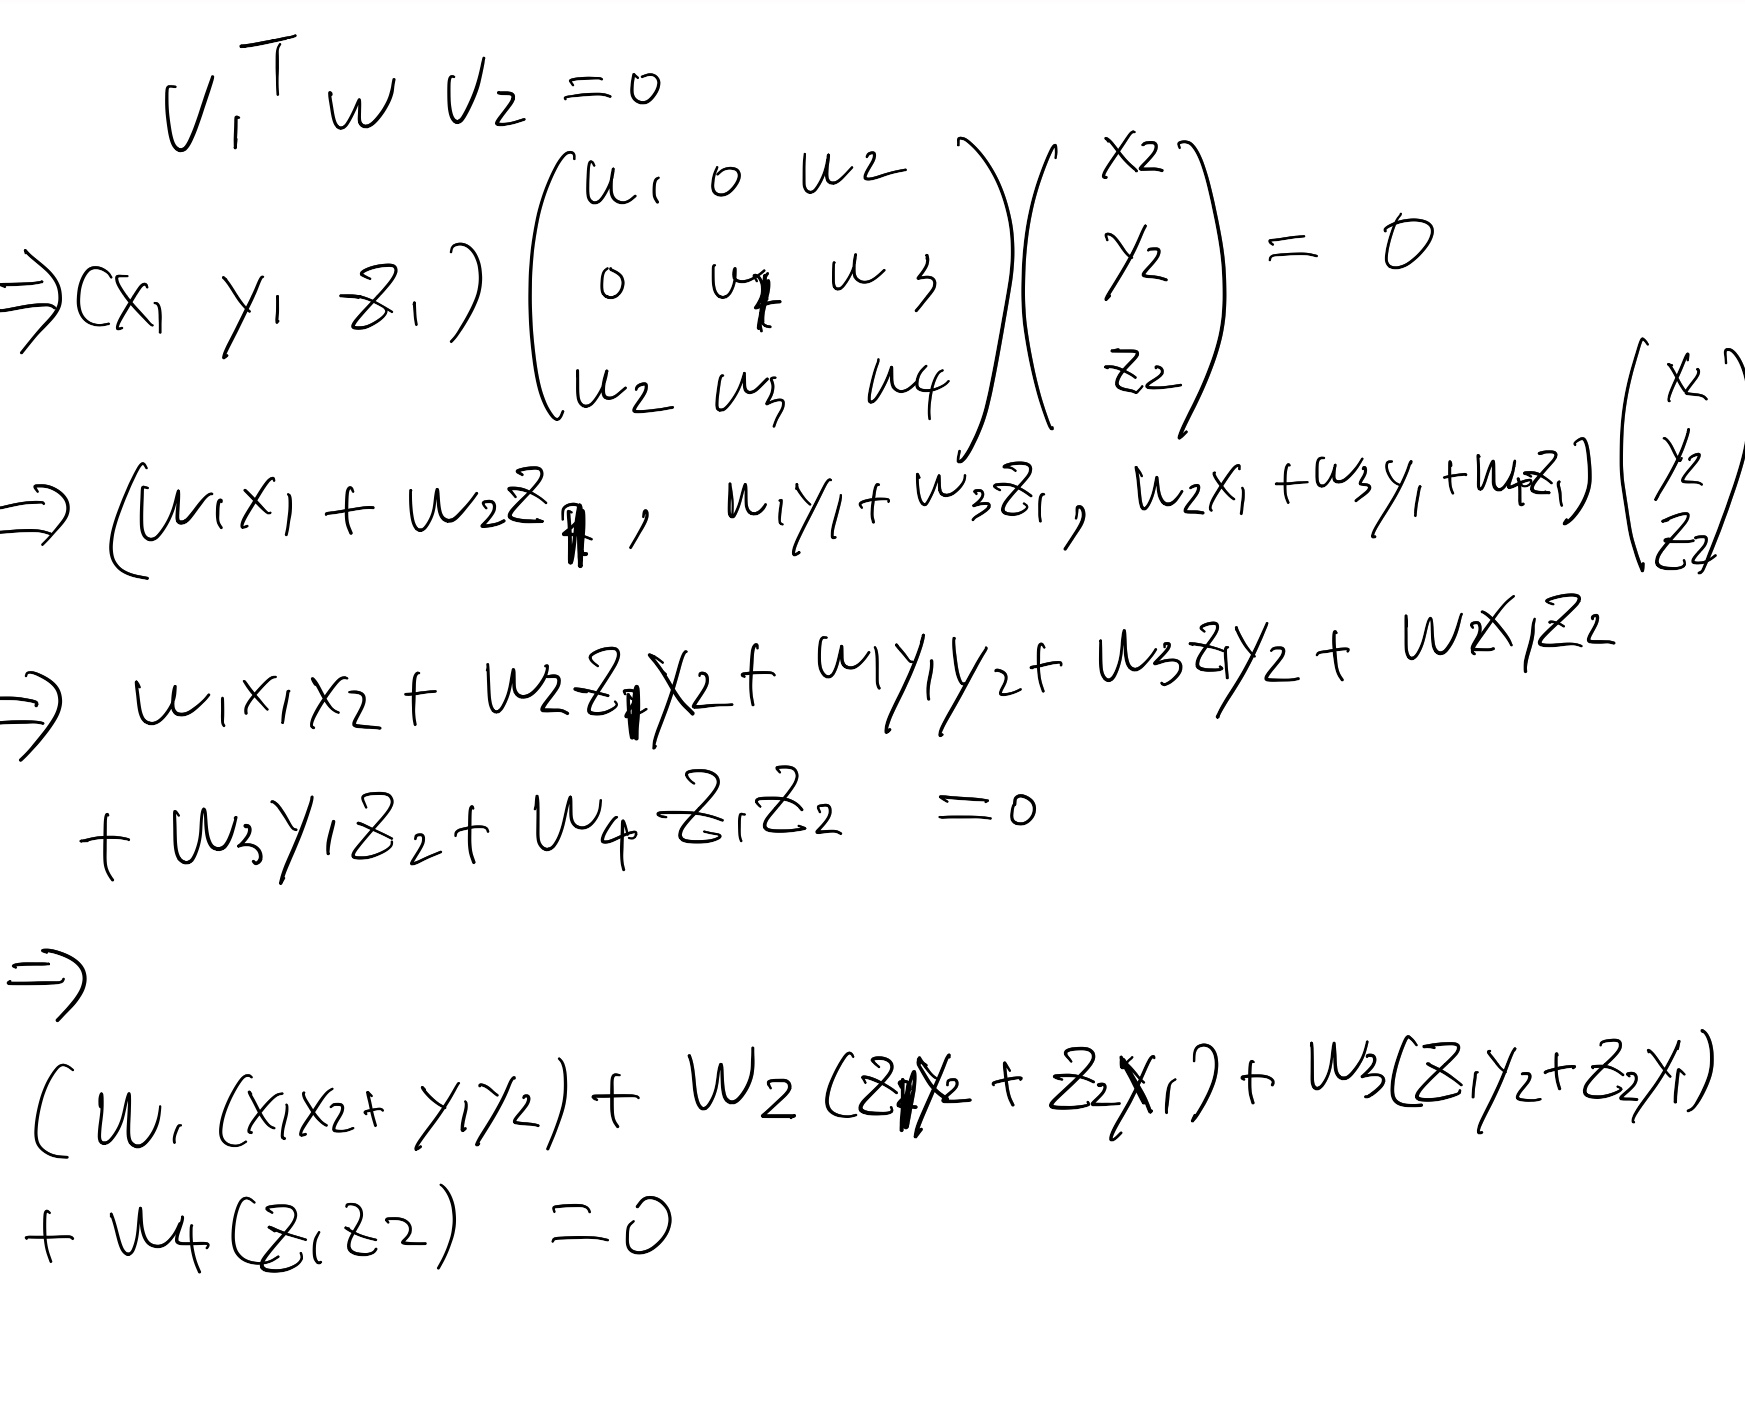 V₁ᵀ w V₂ = 0
⇒ (x₁ y₁ z₁) (w₁ 0 w₂ ; 0 w₁ w₃ ; w₂ w₃ w₄) (x₂ ; y₂ ; z₂) = 0
⇒ (w₁x₁ + w₂z₁ , w₁y₁ + w₃z₁ , w₂x₁ + w₃y₁ + w₄z₁) (x₂ ; y₂ ; z₂)
⇒ w₁x₁x₂ + w₂z₁x₂ + w₁y₁y₂ + w₃z₁y₂ + w₂x₁z₂
+ w₃y₁z₂ + w₄z₁z₂ = 0
⇒
(w₁(x₁x₂ + y₁y₂) + w₂(z₁x₂ + z₂x₁) + w₃(z₁y₂ + z₂y₁)
+ w₄(z₁z₂) = 0